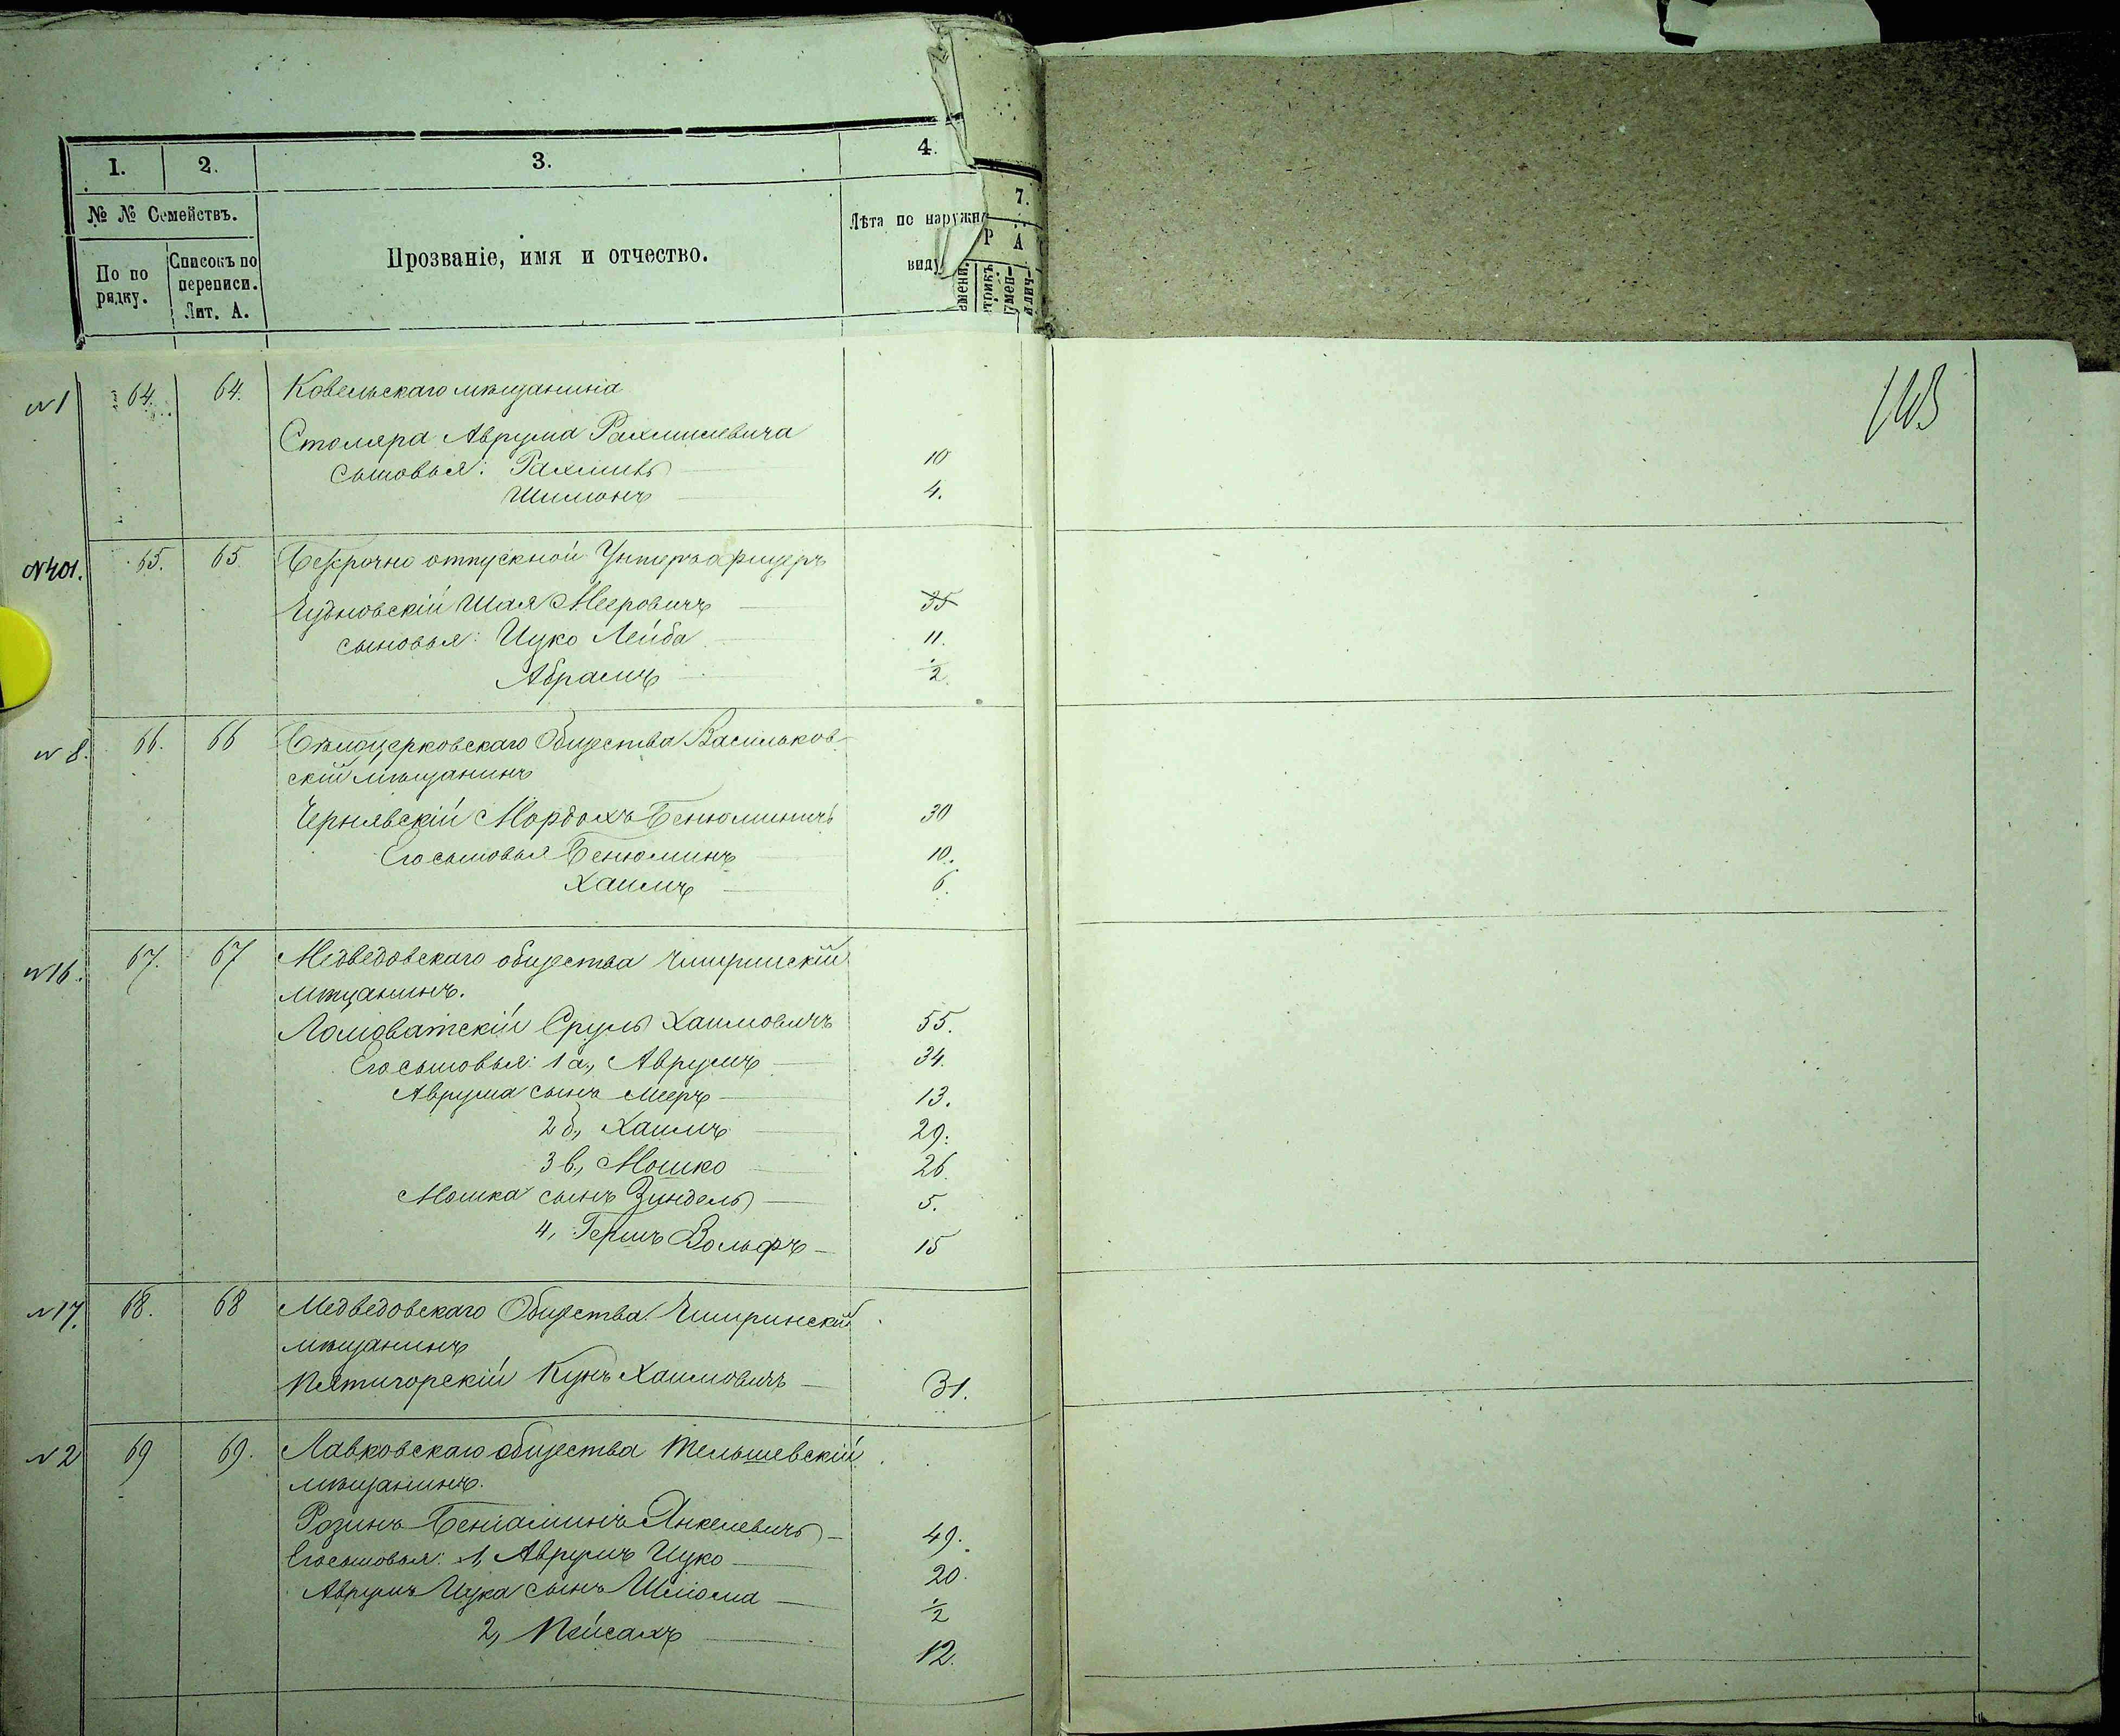 1. 2. 3. 4.
7.
№ № Семействъ.
Р А
По по рядку.
Списокъ по переписи. Лит. А.
Прозваніе, имя и отчество.
Лѣта по наружн
виду
№1 64. 64. Ковельскаго мѣщанина
Столяра Аврума Рахмилевича
сыновья: Рахмиль 10
Шимонъ 4.
№401. 65. 65. Безсрочно отпускной Унтеръофицеръ
Чудновскій Шая Мееровичъ 35
сыновья: Ицко Лейба 11.
Абрамъ 1/2
№8. 66. 66 Бѣлоцерковскаго Общества Васильков-
скій мѣщанинъ
Чернявскій Мордохъ Бенюминичъ 30
Его сыновья Бенюминъ 10.
Хаимъ 6.
№16. 67. 67 Медведовскаго общества Чигиринскій
мѣщанинъ.
Ломоватскій Сруль Хаимовичъ 55.
Его сыновья: 1 а., Аврумъ 34.
Аврума сынъ Мееръ 13.
2 б., Хаимъ 29.
3 в., Мошко 26.
Мошка сынъ Зиндель 5.
4, Гершъ Вольфъ 15
№17. 68. 68 Медведовскаго Общества Чигиринскій
мѣщанинъ
Пятигорскій Кунъ Хаимовичъ 31.
№2 69 69. Лавковскаго общества Тельшевскій
мѣщанинъ.
Розинъ Беніаминъ Янкелевичъ 49.
Его сыновья: 1, Аврумъ Ицко 20.
Аврумъ Ицка сынъ Шліома 1/2
2, Пейсахъ 12.